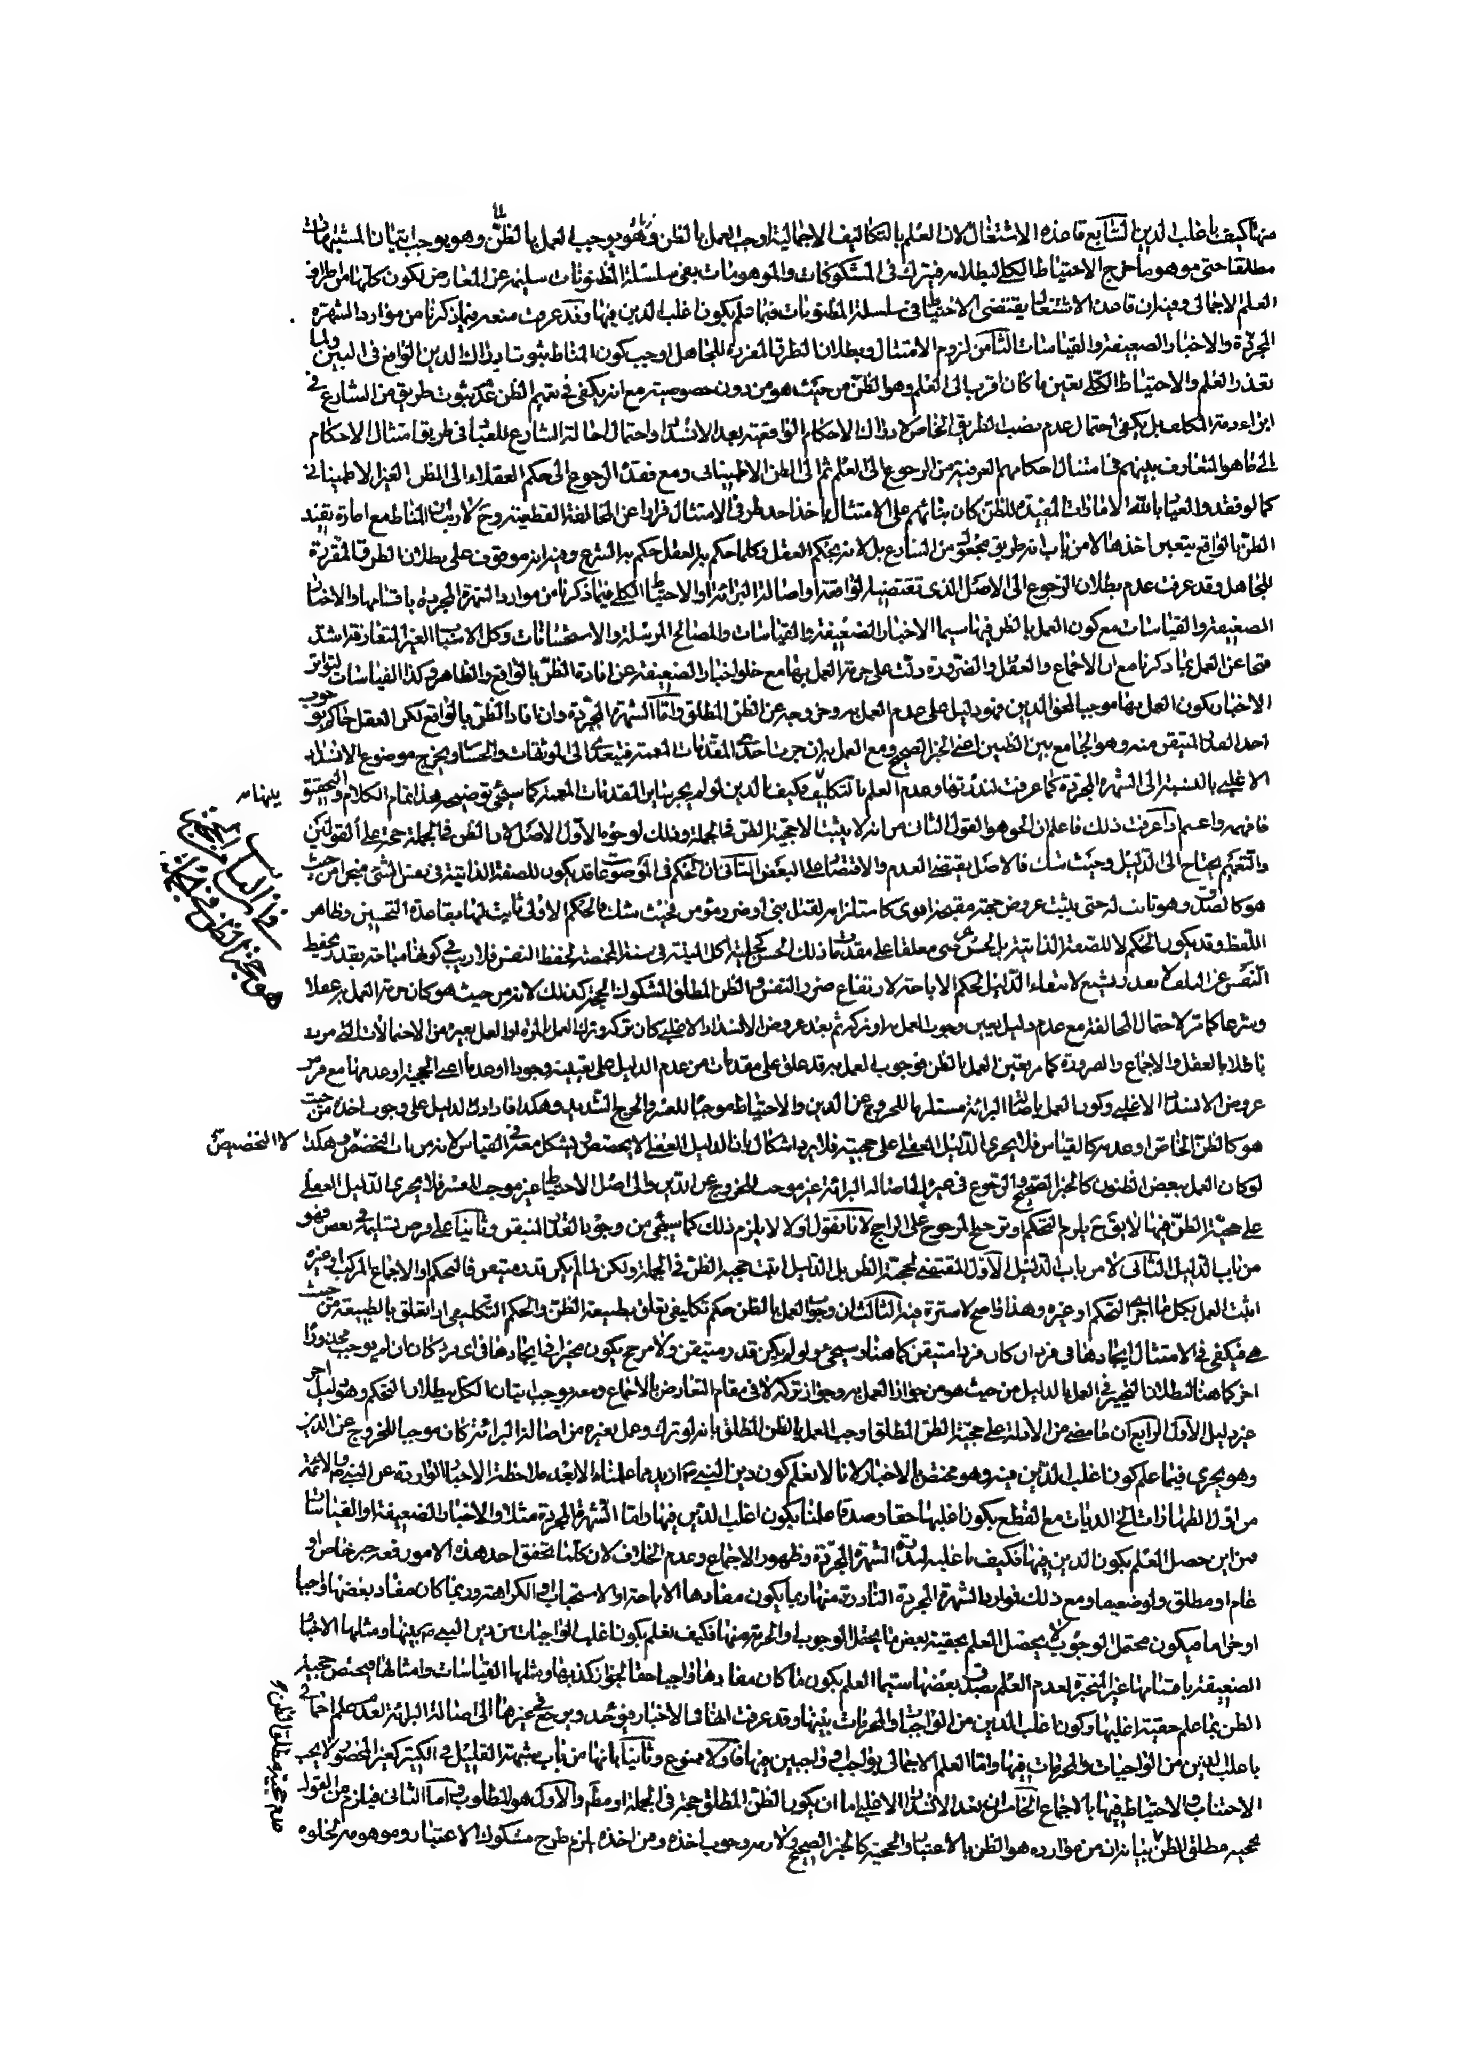 منها كيف باغلب الدين السابع قاعدة الاشتغال لان العلم بالتكاليف الاجمالية اوجب العمل بالظن وهو يوجب العمل بالظن وهو يوجب اتيان المشتبهات
مطلقا حتى موهوما خرج الاحتياط الكلي لبطلانه فيترك في المشكوكات والموهومات بقى سلسلة المظنونات سليمة عن المعارض لكون كلها من اطراف
العلم الاجمالي وفيه ان قاعدة الاشتغال يقتضى الاحتياط في سلسلة المظنونات فيما علم بكون اغلب الدين فيها وقد عرفت منعه فيما ذكرنا من موارد الشهرة
المجردة والاخبار الضعيفة والقياسات الثامن لزوم الامتثال وبطلان الطرق المقررة للجاهل اوجب كون المناط بثبوت ادراك الدين الواقع في البين ولما
تعذر العلم والاحتياط الكلي تعين ما كان اقرب الى العلم وهو الظن من حيث هو من دون خصوصية مع انه يكفى في تعميم الظن عدم ثبوت طريق من الشارع في
ابراء ذمة المكلف بل يكفى احتمال عدم نصب الطريق الخاص لادراك الاحكام الواقعية بعد الانسداد واحتمال احالة الشارع للعباد في طريق امتثال الاحكام
الى ما هو المتعارف بينهم في امتثال احكامهم العرفية من الرجوع الى العلم ثم الى الظن الاطمينانى ومع فقده الرجوع الى حكم العقلاء الى الظن الغير الاطمينانى
كما لو فقد والعياذ بالله الامارات المفيدة للظن كان بنائهم على الامتثال باخذ احد طرفى الامتثال فرارا عن المخالفة القطعية وح لا ريب ان المناط مع امارة يفيد
الظن بالواقع يتعين اخذها لا من باب انه طريق مجعول من الشارع بل لانه بحكم العقل وكلما حكم به العقل حكم به الشرع وفيه انه موقوف على بطلان الطرق المقررة
للجاهل وقد عرفت عدم بطلان الرجوع الى الاصل الذى تقتضيه الواقعة او اصالة البرائة او الاحتياط الكلي فيما ذكرنا من موارد الشهرة المجردة باقسامها والاخبار
الضعيفة والقياسات مع كون العمل بالظن فيها سيما الاخبار الضعيفة والقياسات والمصالح المرسلة والاستحسانات وكل الاسباب الغير المتعارفة اشد
قبحا عن العمل بما ذكرنا مع ان الاجماع والعقل والضرورة دلت على حرمة العمل بها مع خلو اخبار الضعيفة عن افادة الظن بالواقع والظاهر وكذا القياسات لتواتر
الاخبار بكون العمل بها موجب لمحق الدين وهو دليل على عدم العمل به وخروجه عن الظن المطلق واما الشهرة المجردة وان افاد الظن بالواقع لكن العقل حاكم بوجوب
اخذ القدر المتيقن منه وهو الجامع بين الظنين اعنى الخبر الصحيح ومع العمل به ان جرت احدى المقدمات المعممة فيتعدى الى الموثقات والحسان ويخرج موضوع الانسداد
الاغلبى بالنسبة الى الشهرة المجردة كما عرفت لندرتها وعدم العلم بالتكليف وكيف بالدين لو لم يجر بناء المقدمات المعممة كما سيجئ توضيحه هذا تمام الكلام والتحقيق
فافهم واغتنم اذا عرفت ذلك فاعلم ان الحق هو القول الثانى من انه لا يثبت الا حجية الظن في الجملة وذلك لوجوه الاول الاصل لان الظن في الجملة حجة على القولين
والتعميم يحتاج الى الدليل وحيث شك فالاصل يقتضى العدم والاقتصار على البعض الثانى ان الحكم في الموضوعات قد يكون للصفة الذاتية في نفس الشئ من حيث
هو كالصدق وهو ثابت له حتى يثبت عروض جهة مقبحة اقوى كاستلزامه لقتل نبى او ضرر مؤمن فحيث شك فالحكم الاولى ثابت لها بقاعدة التحسين وظاهر
اللفظ وقد يكون الحكم لا للصفة الذاتية بل لحسن عرضى معلقا على مقدمات ذلك الحسن كحلية اكل الميتة في سنة المخمصة لحفظ النفس فلا ريب في كونها مباحة بقدر يحفظ
النفس عن التلف لا بعد رفع لانتفاء الدليل لحكم الاباحة لارتفاع ضرر النفس والظن المطلق المشكوك الحجية كذلك لانه من حيث هو كان حرمة العمل به عقلا
وشرعا كما مر لاحتمال المخالفة مع عدم دليل يعين وجوب العمل به او تركه ثم بعد عروض الانسداد الاغلبى كان تركه وترك العمل
باطلا بالعقل والاجماع والضرورة كما مر يتعين العمل بالظن فوجوب العمل به قد علق على مقدمات من عدم الدليل على تعيينه وجودا او عدما اعنى الحجية او عدمها مع فرض
عروض الانسداد الاغلبى وكون العمل باصالة البرائة مستلزما للخروج عن الدين والاحتياط موجبا للعسر والحرج الشديد وهكذا فاذا دل الدليل على وجوب اخذه من حيث
هو كالظن الخاص او عدمه كالقياس فلا يجرى الدليل العقلى على حجيته فلا يرد اشكال بان الدليل العقلى لا يخصص ويشكل معه في القياس لانه من باب التخصص لا التخصيص وهكذا
لو كان العمل ببعض الظنون كالخبر الصحيح والرجوع في غيره الى اصالة البرائة غير موجب للخروج عن الدين والى اصل الاحتياط غير موجب للعسر فلا يجرى الدليل العقلى
على حجية الظن فيها لا يق ح يلزم التحكم وترجيح المرجوح على الراجح لانا نقول اولا لا يلزم ذلك كما سيجئ من وجود القدر المتيقن وثانيا على فرض تسليمه في بعض فهو
من باب الدليل الثانى لا من باب الدليل الاول المقتضى لحجية الظن بل الدليل اثبت حجية الظن في الجملة ولكن لما لم يكن قدر متيقن فالتحكم والاجماع المركب وغيره
اثبت العمل بكل ما اجرى التحكم او غيره وهذا واضح لا سترة فيه الثالث ان وجوب العمل بالظن حكم تكليفى تعلق بطبيعة الظن والحكم التكليفى اذا تعلق بالطبيعة من حيث
هى فيكفى في الامتثال ايجادها في فرد ان كان فردا متيقن كما هنا وسيجئ ولو لم يكن قدر متيقن ولا مرجح يكون مخيرا في ايجادها في اى فرد كان ان لم يوجب محذورا
اخر كما هنا لبطلان التخيير في العمل بالدليل من حيث هو من جواز العمل به وجواز تركه لا في مقام التعارض بالاجماع ومعه يوجب اتيان الكل ببطلان التحكم وهو دليل اخر
غير دليل الاول الرابع ان ما مضى من الادلة على حجية الظن المطلق اوجب العمل بالظن المطلق بانه لو ترك وعمل بغيره من اصالة البرائة كان موجبا للخروج عن الدين
وهو يجرى فيما علم كون اغلب الدين فيه وهو مختص بالاخبار لانا لا نعلم كون دين النبى ص ازيد ما علمناه الا بعد ملاحظة الاخبار الواردة عن النبى ص والائمة
من اول الطهارات الى الديات مع القطع بكون اغلبها حقا وصدقا علمنا بكون اغلب الدين فيها واما الشهرة المجردة مثلا والاخبار الضعيفة والقياسات
فمن اين حصل العلم بكون الدين فيها فكيف باغلبه لندرة الشهرة المجردة وظهور الاجماع وعدم الخلاف لان كلما تحقق احد هذه الامور فمعه خبر خاص او
عام او مطلق ولو ضعيفا ومع ذلك فموارد الشهرة المجردة النادرة منها ربما يكون مفادها الاباحة او الاستحباب او الكراهة وربما كان مفاد بعضها واجبا
او حراما فيكون محتمل الوجوب لا يحصل العلم بحقية بعض ما يحتمل الوجوب او الحرمة منها فكيف نعلم بكون اغلب الواجبات من دين النبى ص بينها ومثلها الاخبار
الضعيفة باقسامها غير المنجبرة لعدم العلم بصدق بعضها سيما العلم بكون ما كان مفادها واجبا حقا لجواز كذبها ومثلها القياسات وامثالها فيختص حجية
الظن بما علم حقية اغلبها وكون اغلب الدين من الواجبات والمحرمات بينها وقد عرفت انها في الاخبار فيؤخذ ويرجع في غيرها الى اصالة البرائة لعدم علم اجمالى
باغلب الدين من الواجبات والمحرمات فيها واما العلم الاجمالى بواجب او واجبين فيها فاولا ممنوع وثانيا بانها من باب شبهة القليل في الكثير كغير المحصور لا يجب
الاجتناب والاحتياط فيها بالاجماع الخامس ان بعد الانسداد الاغلبى اما ان يكون الظن المطلق حجة في الجملة او مطلقا والاول هو المطلوب واما الثانى فيلزم من القول
بحجية مطلق الظن عدم حجية مطلق الظن بيانه ان من موارده هو الظن بالاعتبار والحجية كالخبر الصحيح ولا ريب في وجوب اخذه ومن اخذه يلزم طرح مشكوك الاعتبار وموهومه لخلوه